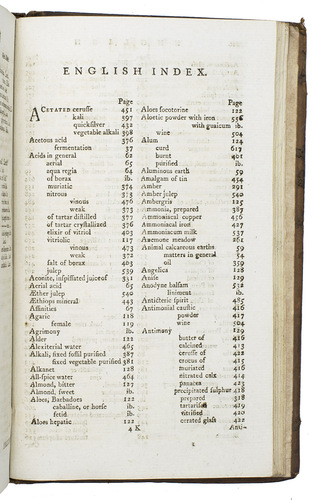 ENGLISH INDEX.
Page
ACETATED cerusse 451
kali 397
quicksilver 432
vegetable alkali 398
Acetous acid 376
fermentation 37
Acids in general 62
aerial 65
aqua regia 64
of borax ib.
muriatic 374
nitrous 373
vinous 476
weak 373
of tartar distilled 377
of tartar crystallized 376
elixir of vitriol 403
vitriolic 117
vinous 473
weak 372
salt of borax 403
julep 539
Aconite, inspissated juice of 331
Aerial acid 65
Æther julep 540
Æthiops mineral 443
Affinities 67
Agaric 118
female 119
Agrimony ib.
Alder 122
Alexiterial water 465
Alkali, fixed fossil purified 387
fixed vegetable purified 381
Alkanet 128
All-spice water 464
Almond, bitter 127
Almond, sweet ib.
Aloes, Barbadoes 122
caballine, or horse ib.
fetid ib.
Aloes hepatic 122
4 K
Page
Aloes succotorine 122
Aloetic powder with iron 556
with guaicum ib.
wine 504
Alum 124
curd 617
burnt 401
purified ib.
Aluminous earth 59
Amalgam of tin 454
Amber 291
Amber julep 540
Ambergris 125
Ammonia, prepared 389
Ammoniacal copper 456
Ammoniacal iron 427
Ammoniacum milk 537
Anemone meadow 261
Animal calcareous earths 59
matters in general 34
oil 359
Angelica 128
Anise 129
Anodyne balsam 532
liniment ib.
Anticteric spirit 485
Antimonial caustic 416
powder 417
wine 504
Antimony 129
butter of 416
calcined 413
cerusse of 422
crocus of 415
muriated 416
nitrated calx 414
panacea 423
precipitated sulphur 418
prepared 318
tartarised 419
vitrified 420
cerated glass 422
Anti-